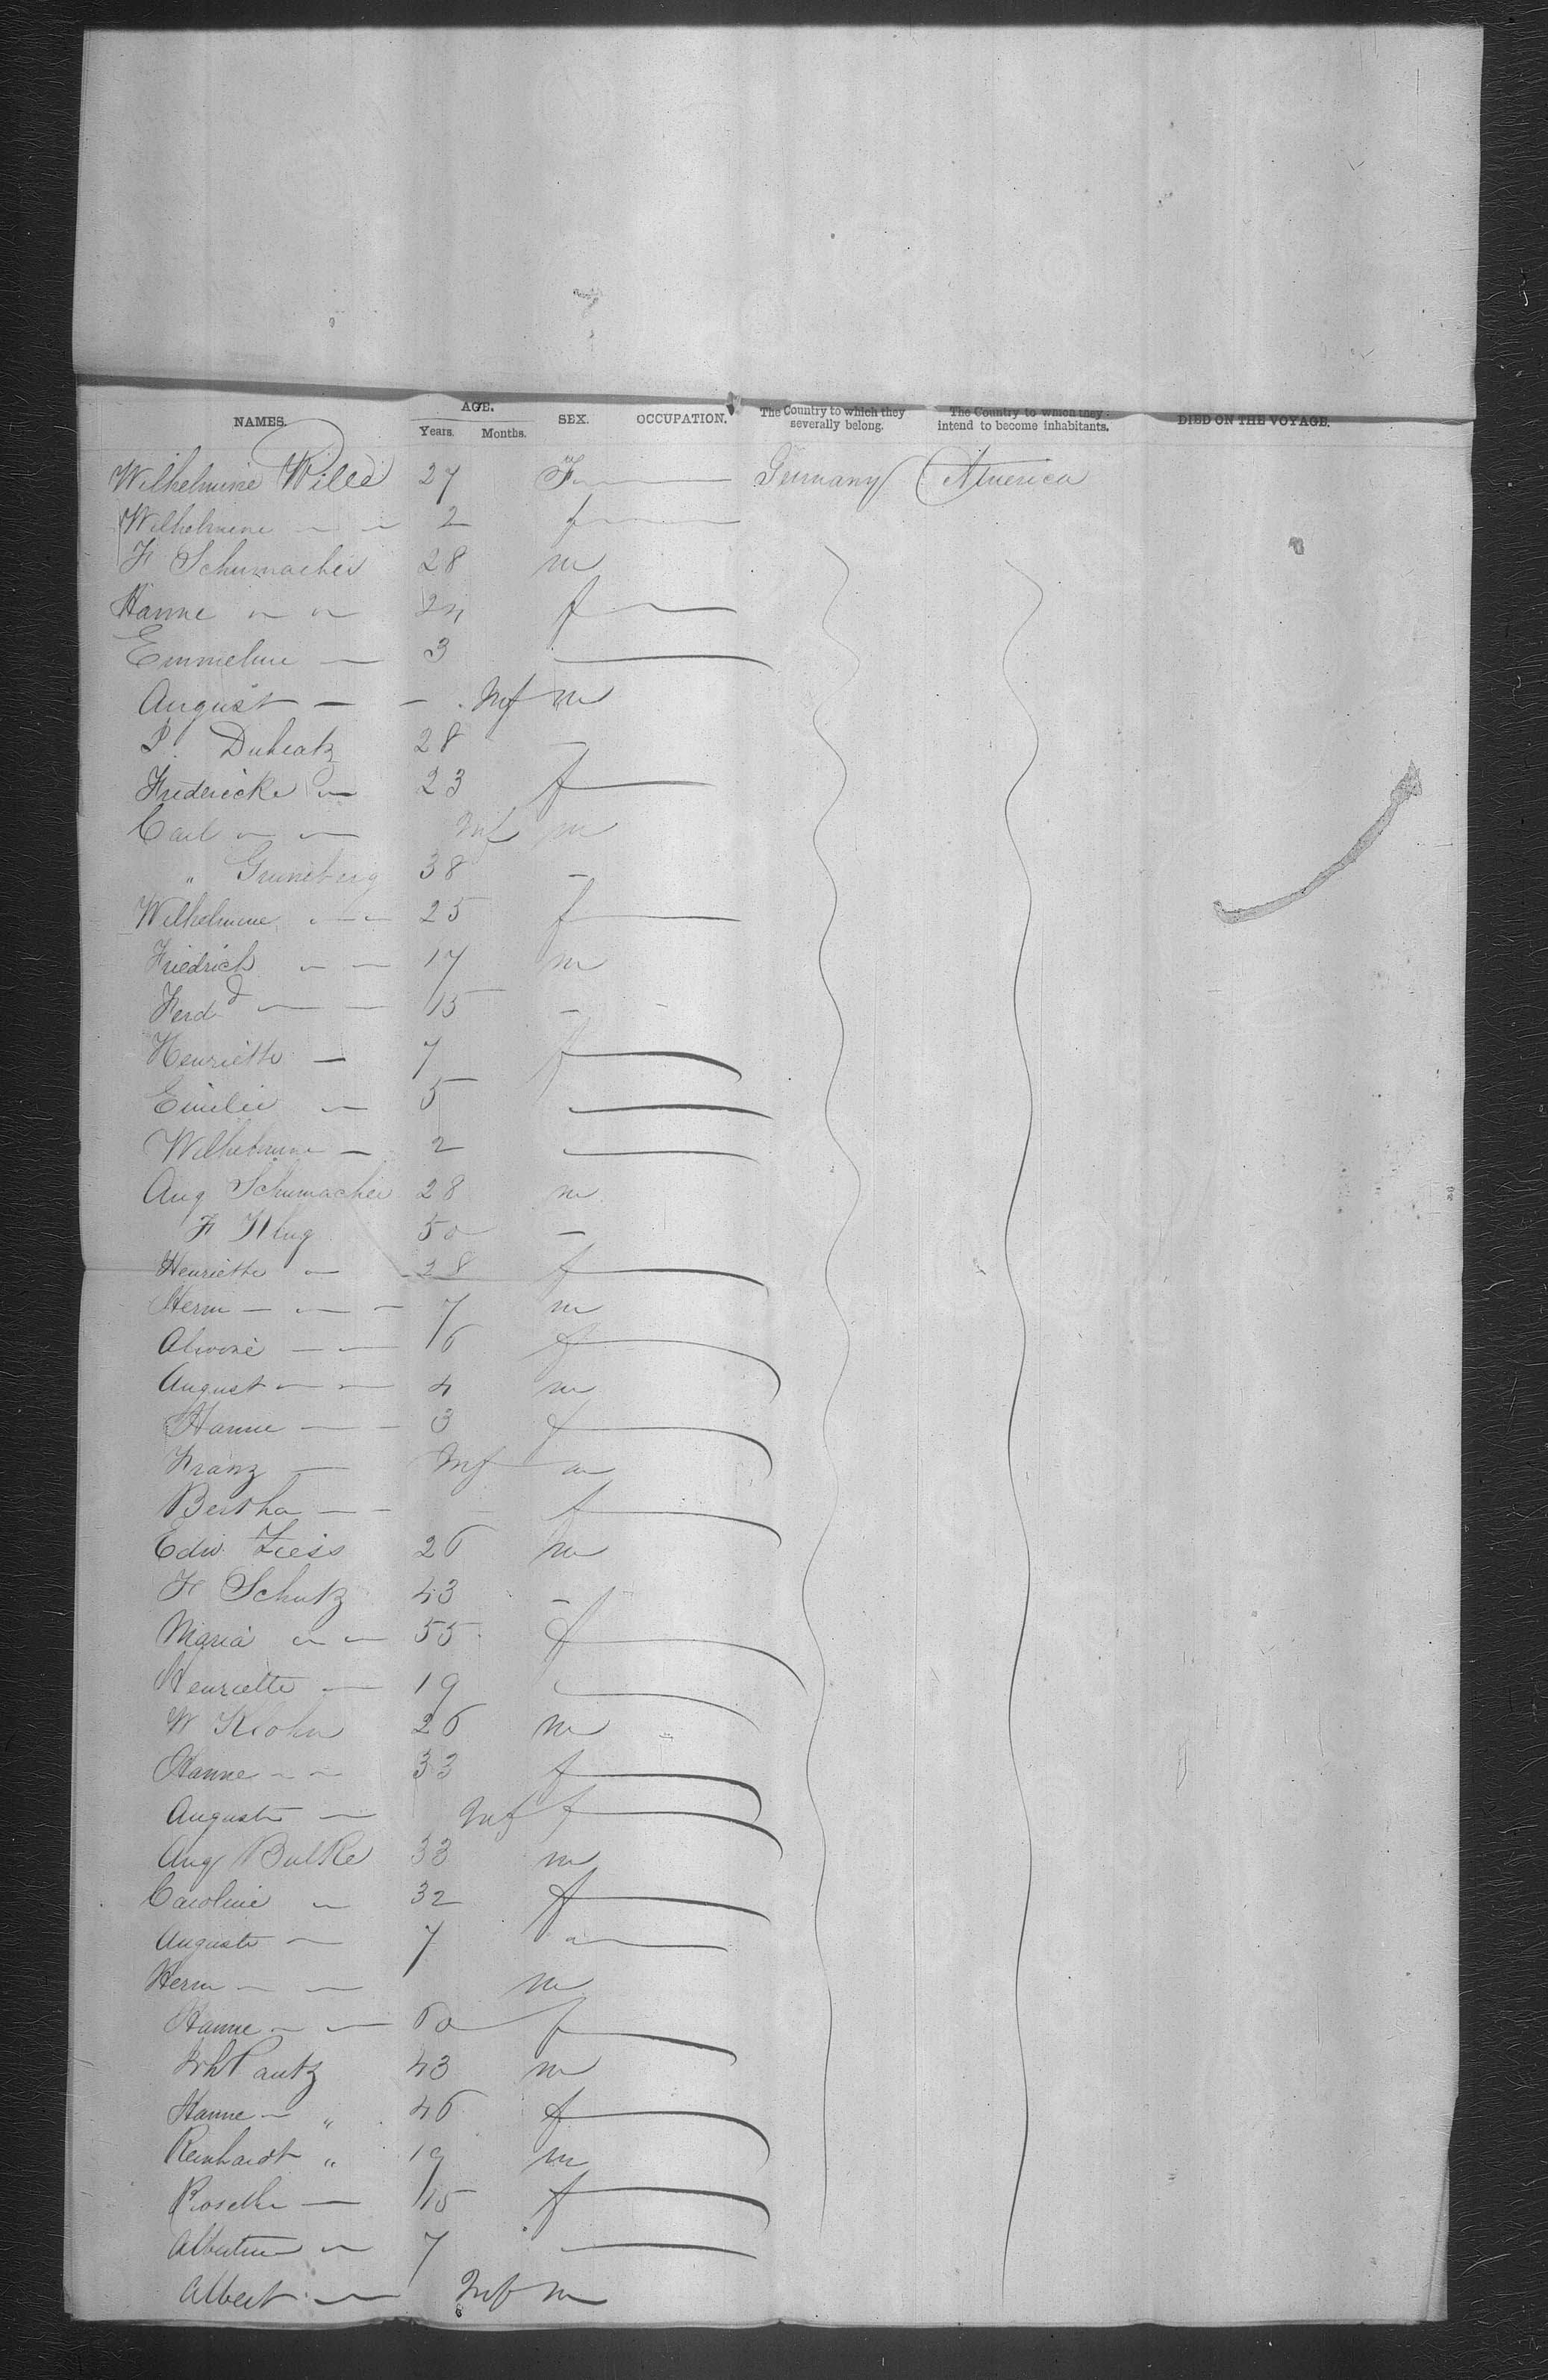 NAMES. AGE. Years. Months. SEX. OCCUPATION. The Country to which they severally belong. The Country to which they intend to become inhabitants. DIED ON THE VOYAGE.
Wilhelmine Wille 27 F Germany America
Wilhelmine — — 2 f
F Schumacher 28 m
Hanne — — 24 f
Emmeline — 3 —
August — — Inf m
28 —
Fredericke — 23 f
Carl — — Inf m
" Gruneberg 38 —
Wilhelmine — — 25 f
Friedrich — — 17 m
Ferd — — 15 —
Henriette — 7 f
Emilie — 5 —
Wilhelmine — 2 —
Aug Schumacher 28 m
F Klug 50 —
Henriette — 28 f
Herm — — — 7 m
Alwine — — 6 f
August — — 4 m
Hanne — — 3 f
Franz — Inf m
Bertha — — — f
Edw Ziess 26 m
F Schutz 43 —
Maria — — 55 f
Henriette — 19 —
W Krohn 26 m
Hanne — — 33 f
Auguste — Inf f
Aug Bulke 33 m
Caroline — 32 f
Auguste — 7 —
Herm — — m
Hanne — — 60 f
Pautz 43 m
Hanne — " 46 f
Reinhardt " 19 m
Rosette — 15 f
Albertine — 7 —
Albert — Inf m